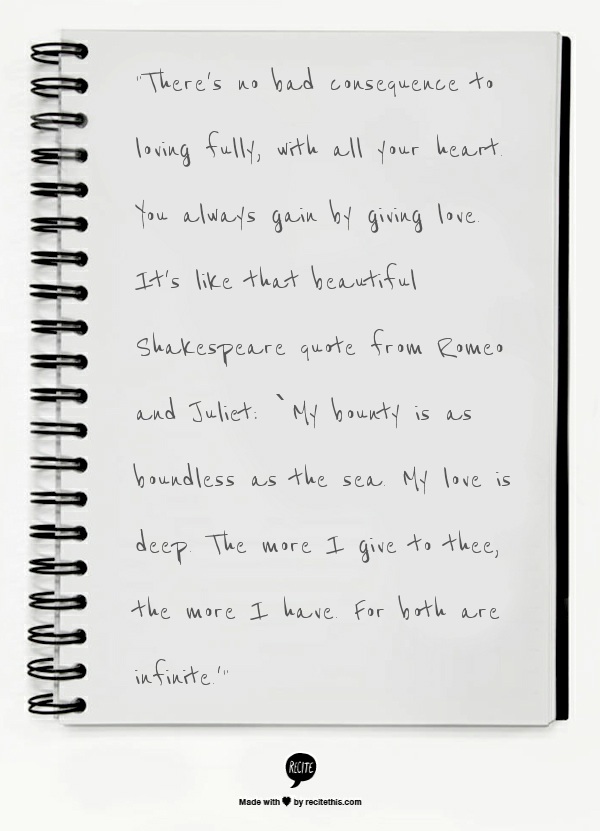 "There's no bad consequence to
loving fully, with all your heart.
You always gain by giving love.
It's like that beautiful
Shakespeare quote from Romeo
and Juliet: `My bounty is as
boundless as the sea. My love is
deep. The more I give to thee,
the more I have. For both are
infinite.'"
RECITE
Made with ♥ by recitethis.com